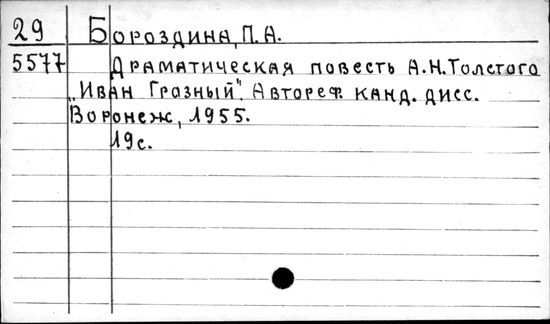 29 Бороздина, П.А.
5577 Драматическая повесть А.Н.Толстого
„Иван Грозный". Автореф. канд. дисс.
Воронеж, 1955.
19с.